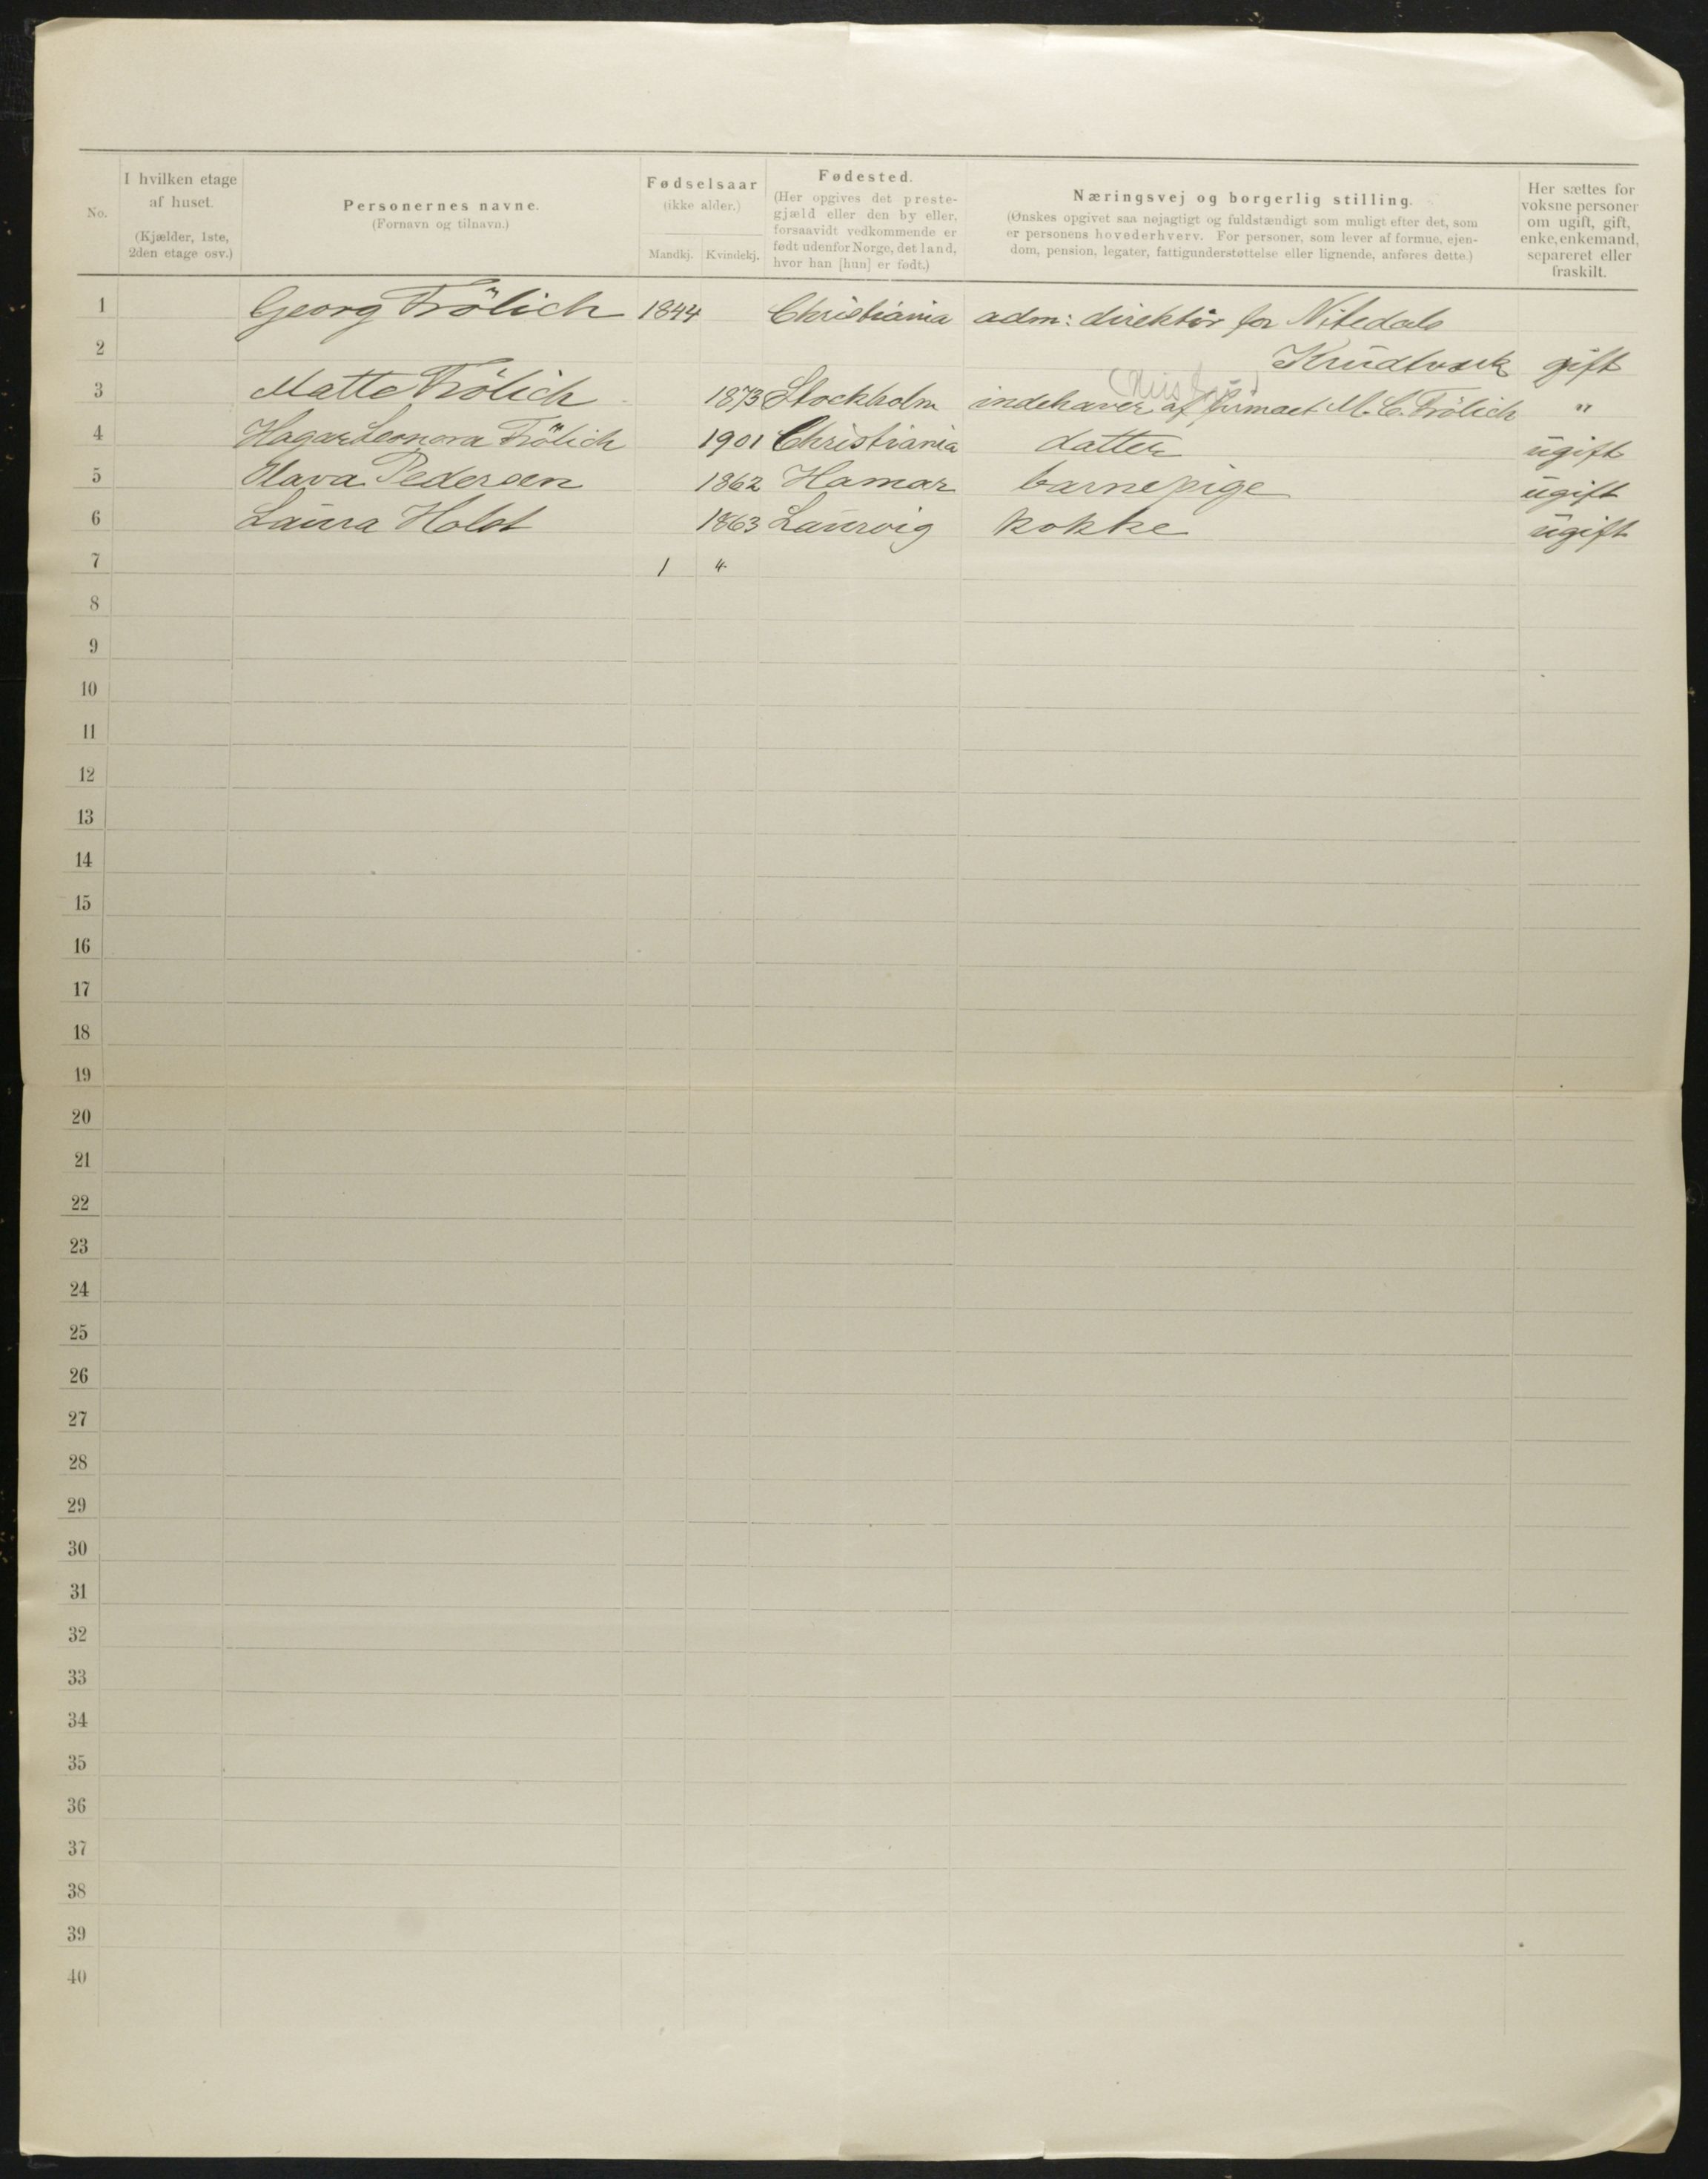 No.
I hvilken etage af huset. (Kjælder, 1ste, 2den etage osv.)
Personernes navne. (Fornavn og tilnavn.)
Fødselsaar (ikke alder.) Mandkj. Kvindekj.
Fødested. (Her opgives det prestegjæld eller den by eller, forsaavidt vedkommende er født udenfor Norge, det land, hvor han [hun] er født.)
Næringsvej og borgerlig stilling. (Ønskes opgivet saa nøjagtigt og fuldstændigt som muligt efter det, som er personens hovederhverv. For personer, som lever af formue, ejendom, pension, legater, fattigunderstøttelse eller lignende, anføres dette.)
Her sættes for voksne personer om ugift, gift, enke, enkemand, separeret eller fraskilt.
1 Georg Frölich 1844 Christiania adm: direktör for Nitedals
2 Krudtværk gift
3 Matte Frölich 1873 Stockholm indehaver af firmaet M. C. Frölich "
4 Hagar Leonora Frölich 1901 Christiania datter ugift
5 Olava Pedersen 1862 Hamar barnepige ugift
6 Laura Holst 1863 Laurvig kokke ugift
7 1 4
8
9
10
11
12
13
14
15
16
17
18
19
20
21
22
23
24
25
26
27
28
29
30
31
32
33
34
35
36
37
38
39
40